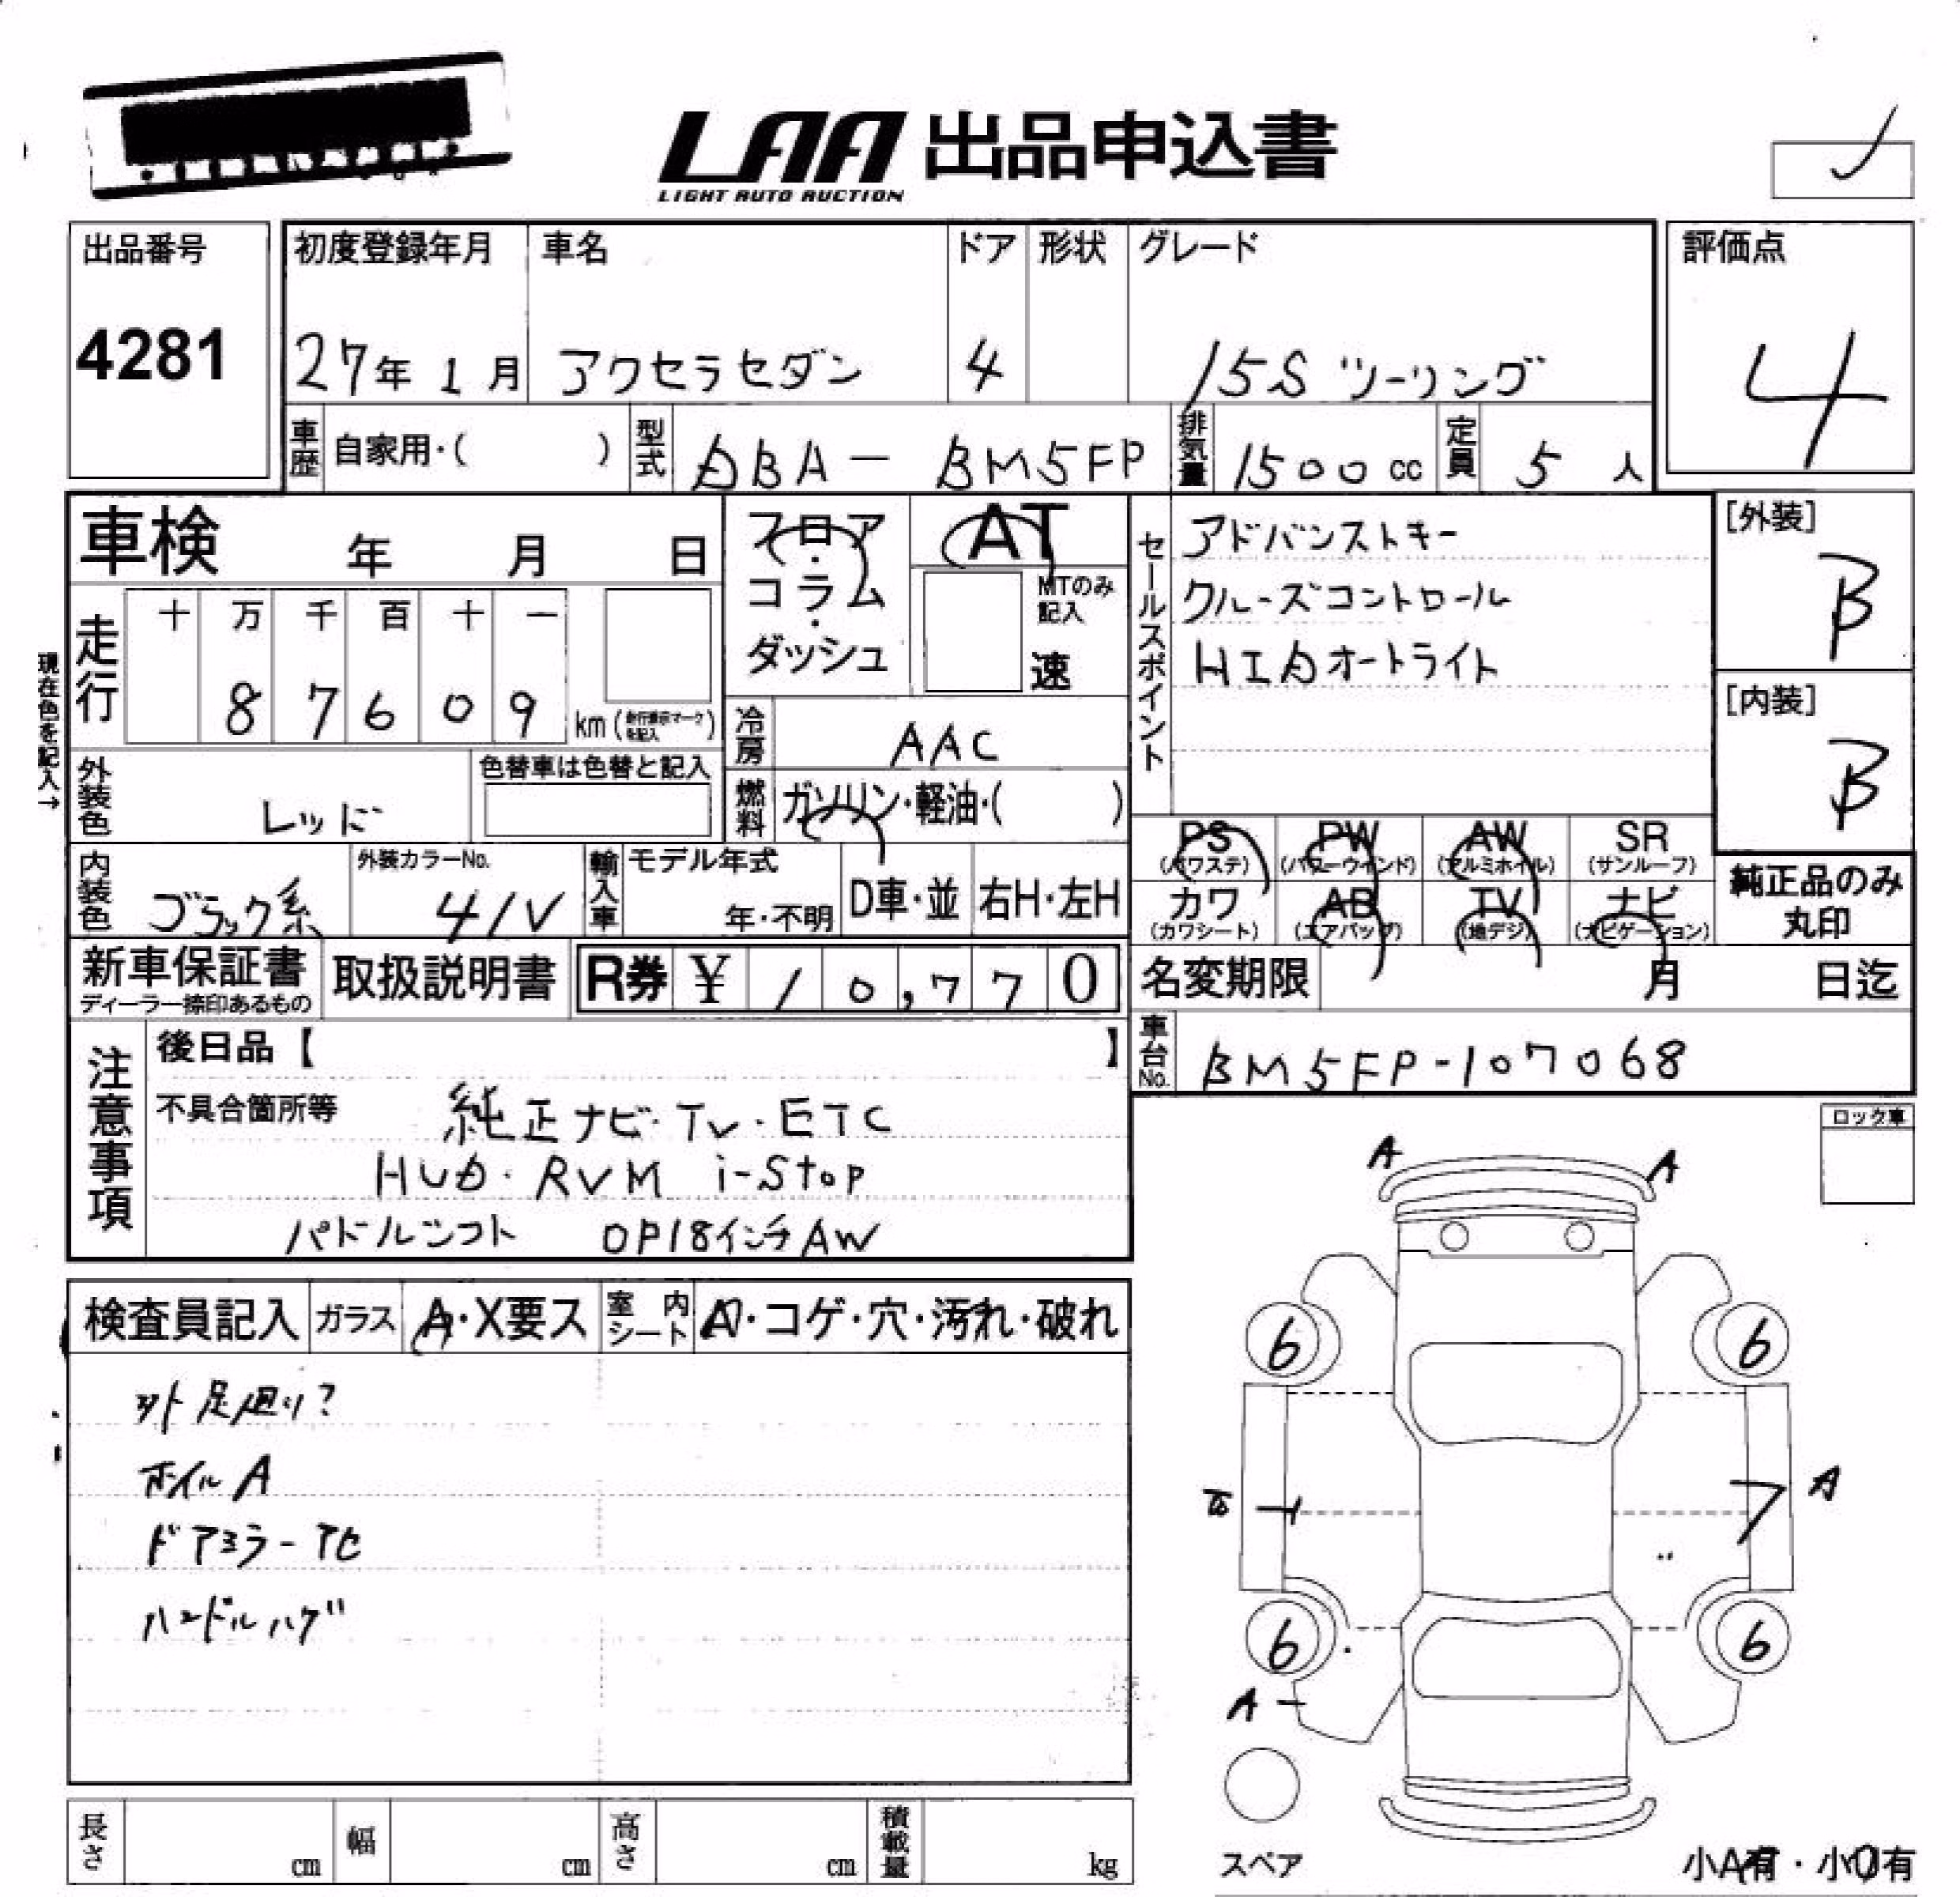 LAA 出品申込書
LIGHT AUTO AUCTION
出品番号
4281
初度登録年月
27年 1月
車名
アクセラセダン
ドア
4
形状
グレード
15S ツーリング
評価点
4
車歴 自家用・( )
型式 DBA - BM5FP
排気量 1500 cc
定員 5 人
車検 年 月 日
フロア・コラム・ダッシュ
AT
MTのみ記入
速
セールスポイント
アドバンストキー
クルーズコントロール
HIDオートライト
[外装]
B
[内装]
B
現在色を記入→
走行
十 万 千 百 十 一
8 7 6 0 9 km (走行表示マークを記入)
冷房 AAC
外装色 レッド
色替車は色替と記入
燃料 ガソリン・軽油・( )
PS (パワステ)
PW (パワーウインド)
AW (アルミホイル)
SR (サンルーフ)
カワ (カワシート)
AB (エアバッグ)
TV (地デジ)
ナビ (ナビゲーション)
純正品のみ丸印
内装色 ブラック系
外装カラーNo. 41V
輸入車
モデル年式 年・不明
D車・並
右H・左H
新車保証書
ディーラー捺印あるもの
取扱説明書
R券 ¥ 10,770
名変期限 月 日迄
車台No. BM5FP-107068
注意事項
後日品【 】
不具合箇所等
純正ナビ・TV・ETC
HUD・RVM i-Stop
パドルシフト OP18インチAW
ロック車
検査員記入
ガラス A・X要ス
室内シート
・コゲ・穴・汚れ・破れ
外 足廻り?
ホイルA
ドアミラーアセ
ハンドルハゲ
A
A
6
6
A
6
6
A
スペア
小A有・小U有
長さ cm
幅 cm
高さ cm
積載量 kg